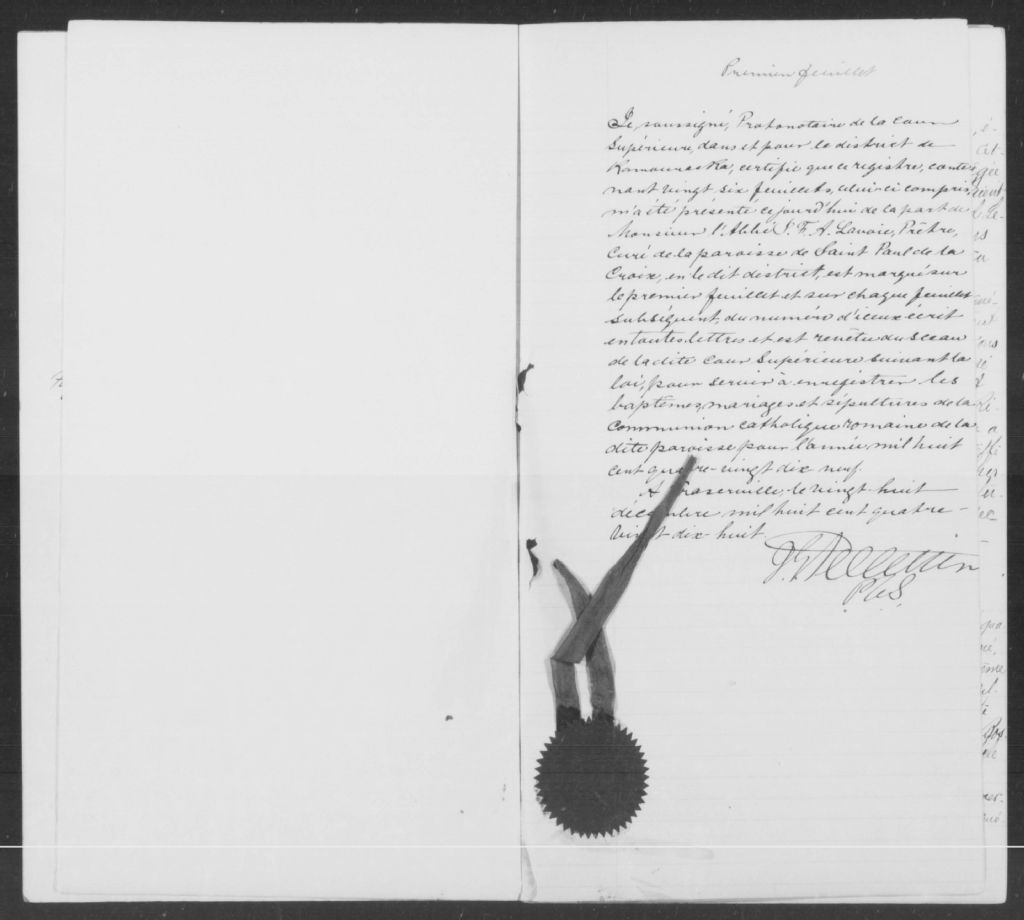 Premier feuillet
Je, soussigné, Protonotaire de la Cour
Supérieure, dans et pour le district de
Kamouraska, certifie que ce registre, conte-
nant vingt six feuillets, celui-ci compris,
m'a été présenté ce jourd'hui de la part de
Monsieur l'Abbé J. F. A. Lavoie, Prêtre,
Curé de la paroisse de Saint Paul de la
Croix, en le dit district, est marqué sur
le premier feuillet et sur chaque feuillet
subséquent, du numéro d'iceux écrit
en toutes lettres et est revêtu du sceau
de la dite Cour Supérieure suivant la
loi, pour servir à enregistrer les
baptêmes, mariages et sépultures de la
Communion catholique romaine de la
dite paroisse pour l'année mil huit
cent quatre-vingt dix neuf.
A Fraserville, le vingt huit
décembre mil huit cent quatre-
vingt dix-huit
Pelletier
P.C.S.